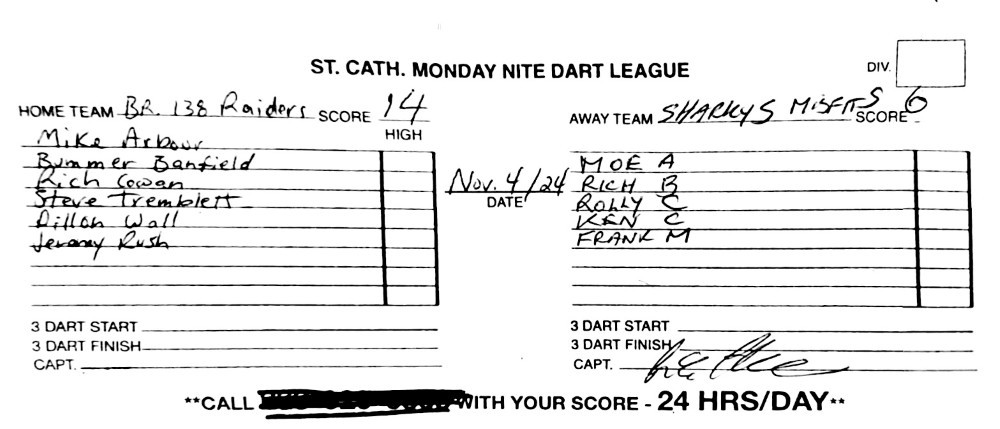 ST. CATH. MONDAY NITE DART LEAGUE
DIV.
HOME TEAM BR. 138 Raiders SCORE 14
HIGH
AWAY TEAM SHARKYS MISFITS SCORE 6
Mike Arbour
Bummer Banfield
Rich Cowan
Steve Tremblett
Dillon Wall
Jeramy Rush
Nov. 4/24
DATE
MOE A
RICH B
ROLLY C
KEN C
FRANK M
3 DART START
3 DART FINISH
CAPT.
3 DART START
3 DART FINISH
CAPT.
**CALL WITH YOUR SCORE - 24 HRS/DAY**